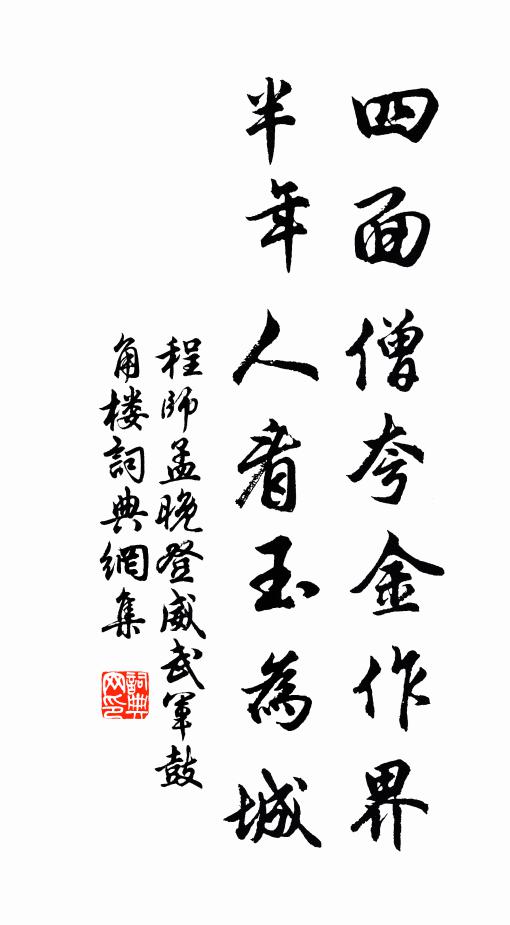 四面僧夸金作界
半年人看玉為城
程師孟晚登威武軍鼓
角楼詞典網集
詞典網印